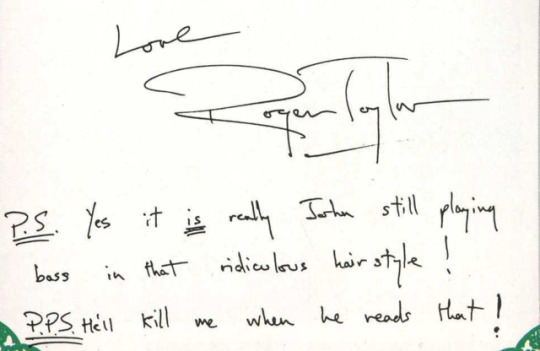 Love
Roger Taylor
P.S. Yes it is really John still playing
bass in that ridiculous hairstyle!
P.P.S. He'll kill me when he reads that!